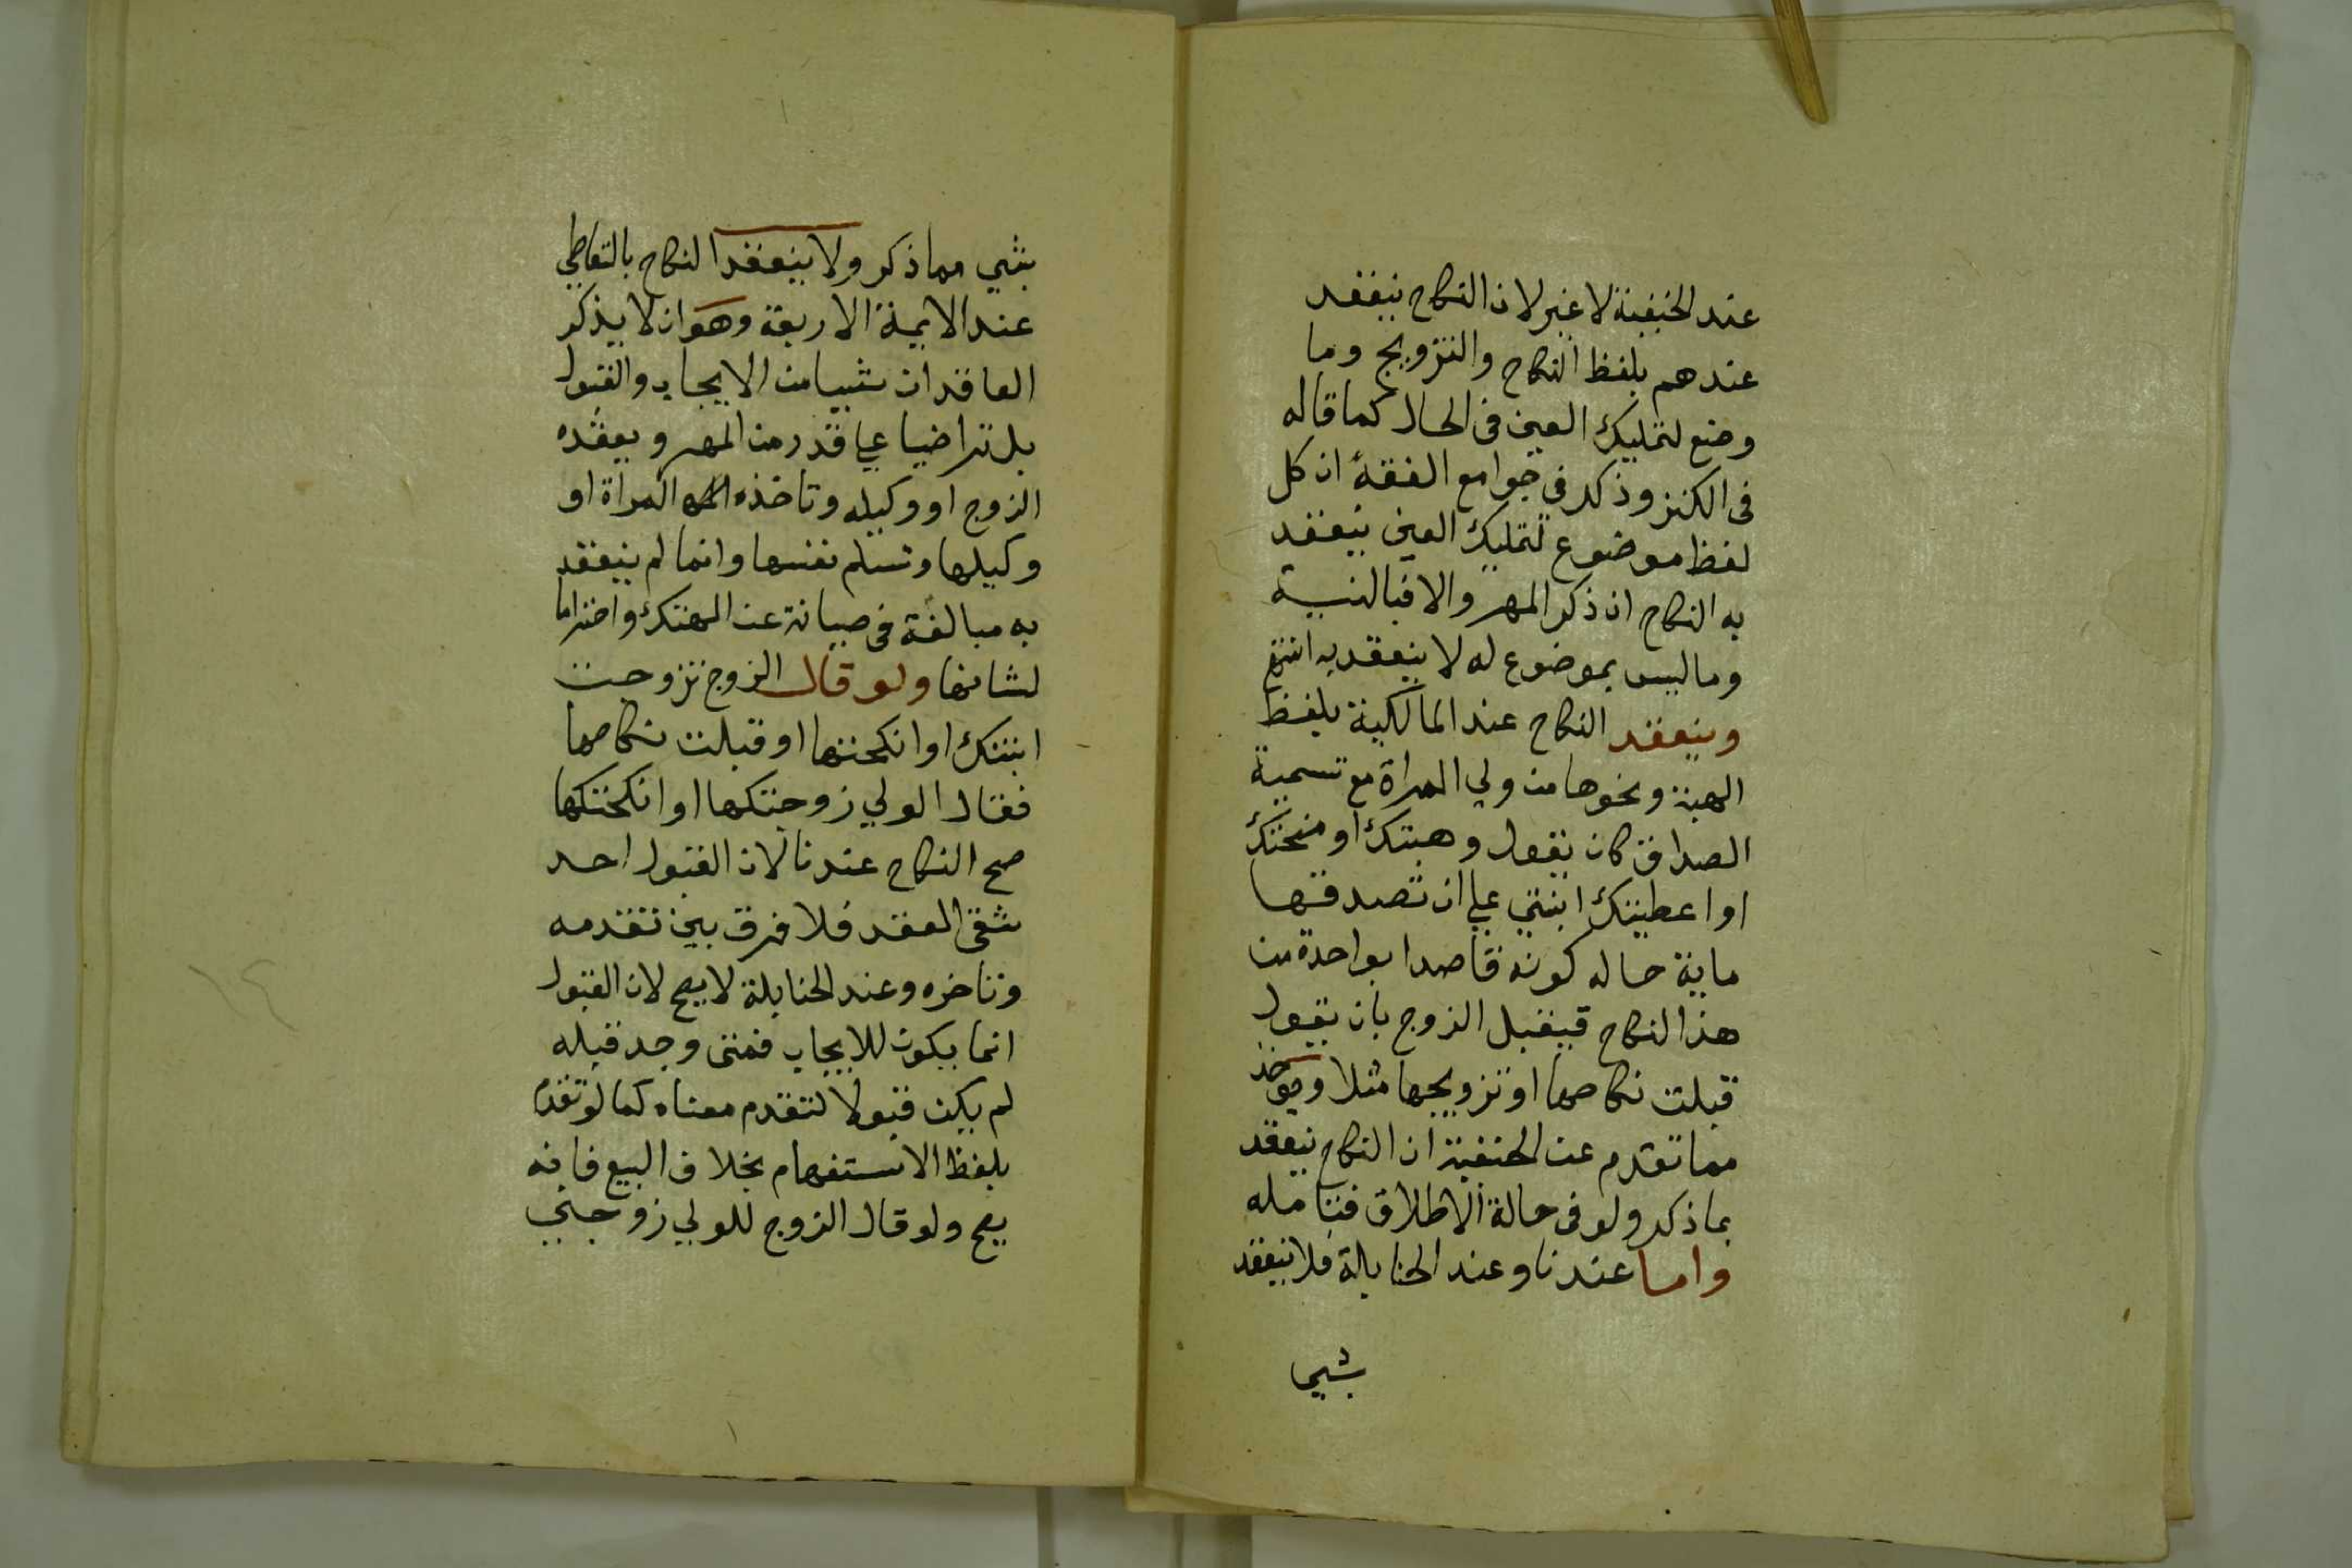 عند الحنفية لا غير لان النكاح ينعقد
عندهم بلفظ النكاح والتزويج وما
وضع لتمليك العين فى الحال كما قاله
فى الكنز وذكر في جوامع الفقه ان كل
لفظ موضوع لتمليك العين ينعقد
به النكاح ان ذكر المهر والا فبالنية
وما ليس بموضوع له لا ينعقد به انتهى
وينعقد النكاح عند المالكية بلفظ
الهبة ونحوها من ولي المراة مع تسمية
الصداق كان يقول وهبتك او منحتك
او اعطيتك ابنتي علي ان تصدقها
ماية حاله كونه قاصدا بواحدة من
هذا النكاح فيقبل الزوج بان يقول
قبلت نكاحها او تزويجها مثلا ويوخذ
مما تقدم عن الحنفية ان النكاح ينعقد
بما ذكر ولو فى حالة الاطلاق فتامله
واما عندنا وعند الحنابلة فلا ينعقد
بشي
بشي مما ذكر ولا ينعقد النكاح بالتعاطي
عند الايمة الاربعة وهو ان لا يذكر
العاقدان شيا من الايجاب والقبول
بل تراضيا علي قدر من المهر وبعقده
الزوج او وكيله وتاخذه المراة او
وكيلها وتسلم نفسها وانما لم ينعقد
به مبالغة فى صيانة عن الهتك واحتراما
لشانها ولو قال الزوج تزوجت
ابنتك او انكحتها او قبلت نكاحها
فقال الولي زوجتكها او انكحتكها
صح النكاح عندنا لان القبول احد
شقى العقد فلا فرق بين تقدمه
وتاخره وعند الحنابلة لا يصح لان القبول
انما يكون للايجاب فمتى وجد قبله
لم يكن قبولا لتقدم معناه كما لو تقدم
بلفظ الاستفهام بخلاف البيع فانه
يصح ولو قال الزوج للولي زوجني